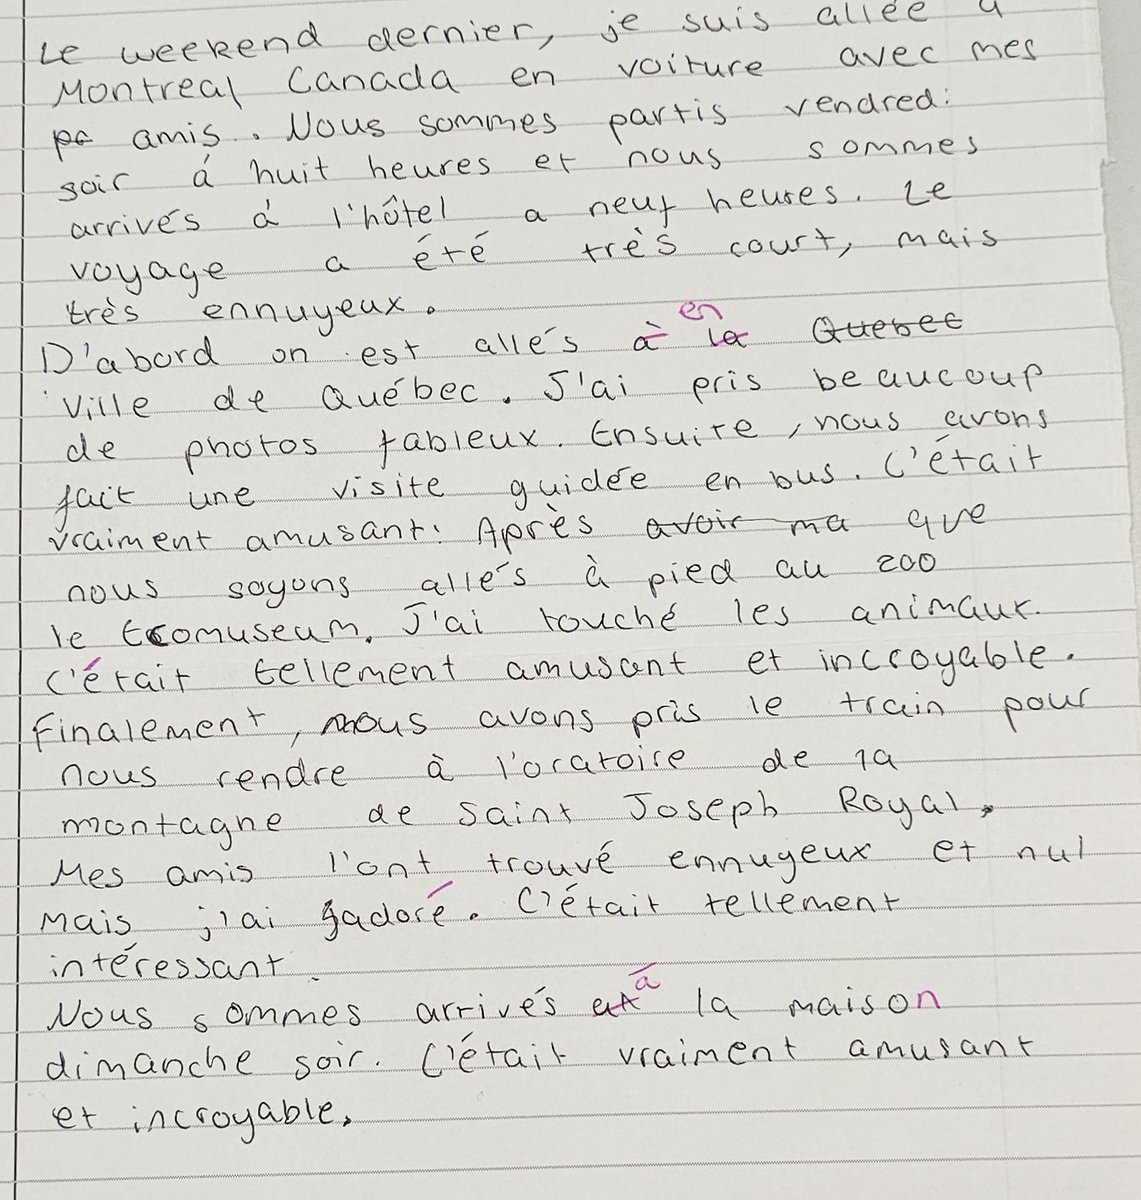 Le weekend dernier, je suis allée à
Montreal Canada en voiture avec mes
pc amis. Nous sommes partis vendredi
soir á huit heures et nous sommes
arrivés á l'hôtel a neuf heures. Le
voyage a été très court, mais
très ennuyeux.
en
D'abord on est allés à la Quebec
ville de Québec. J'ai pris beaucoup
de photos fableux. Ensuite, nous avons
fait une visite guidée en bus. C'était
vraiment amusant! Après avoir ma que
nous soyons allés à pied au zoo
le Ecomuseum. J'ai touché les animaux.
C'était tellement amusant et incroyable.
Finalement, nous avons pris le train pour
nous rendre à l'oratoire de la
montagne de saint Joseph Royal.
Mes amis l'ont trouvé ennuyeux et nul
mais j'ai adoré. C'était tellement
intéressant.
à
Nous sommes arrivés la maison
dimanche soir. C'était vraiment amusant
et incroyable.